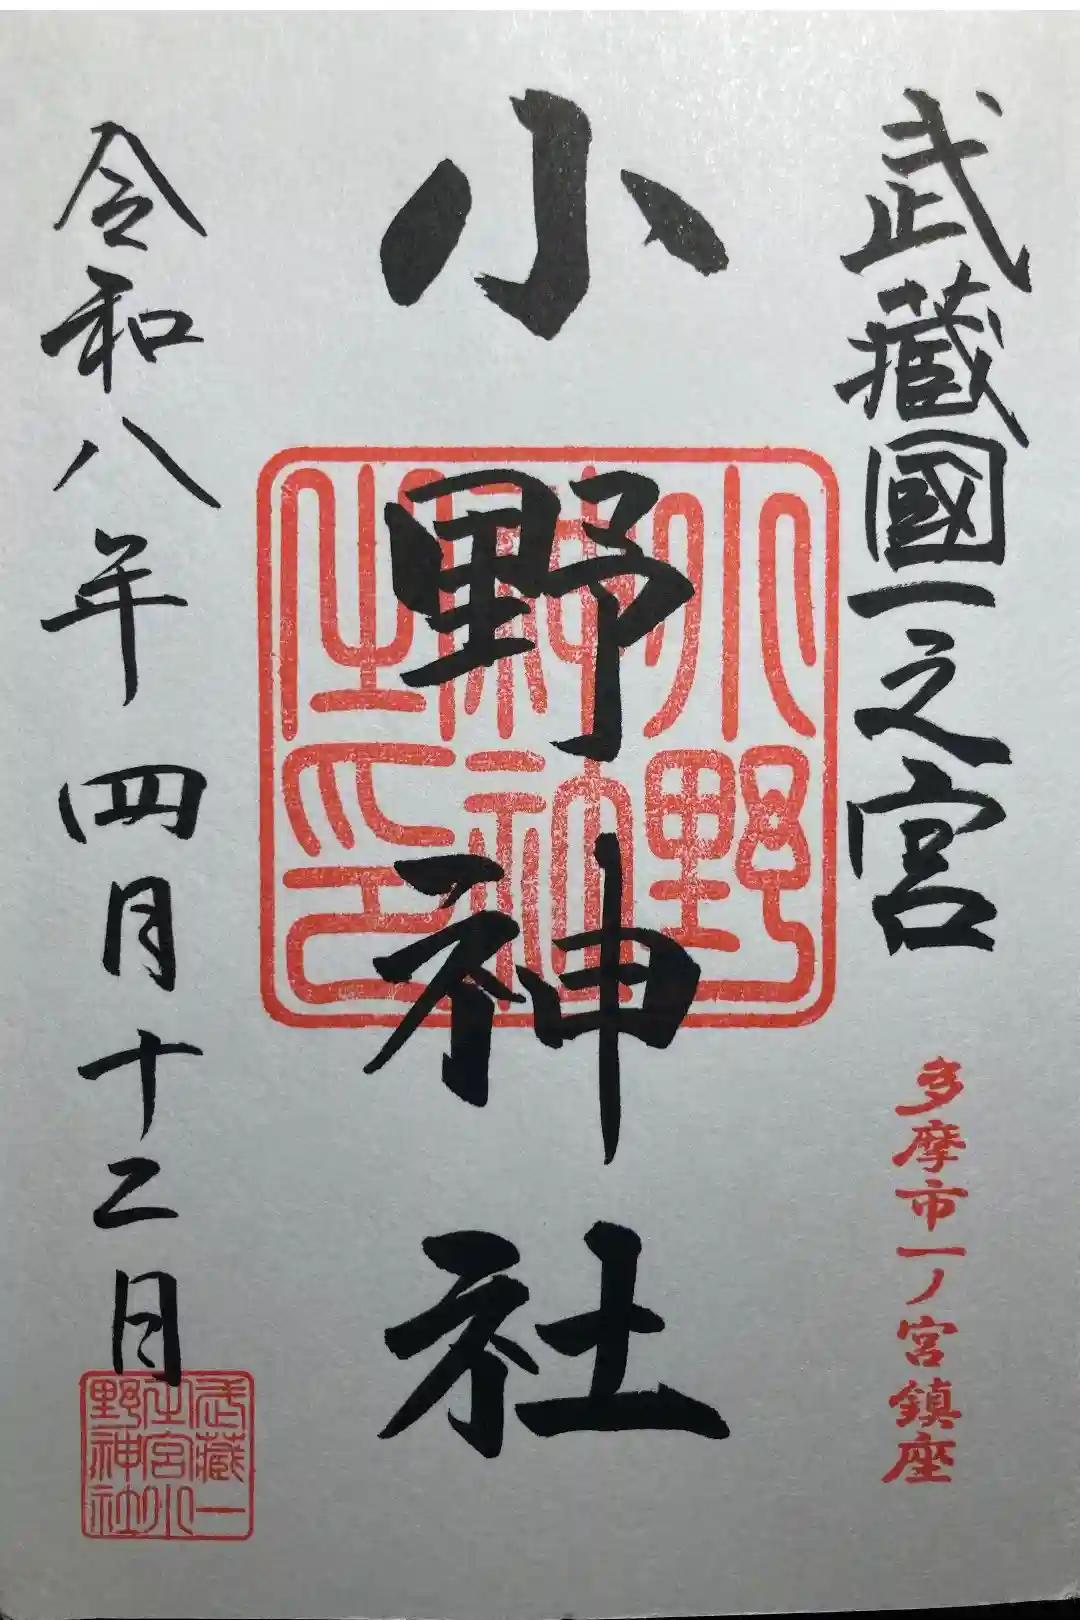 武藏國一之宮
多摩市一ノ宮鎮座
小野神社
小野神社之印
令和八年 四月十二日
武藏一之宮小野神社